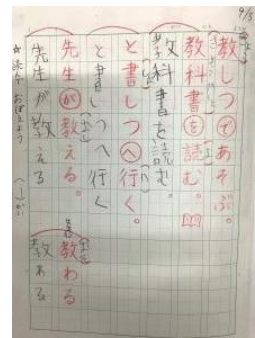 9/5
教しつであそぶ。
教科書を読む。
教科書を読む。
と書しつへ行く。
と書しつへ行く
先生が教える。
先生が教える
教わる
教わる